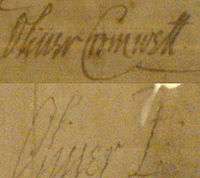 Oliver Cromwell
Oliver P